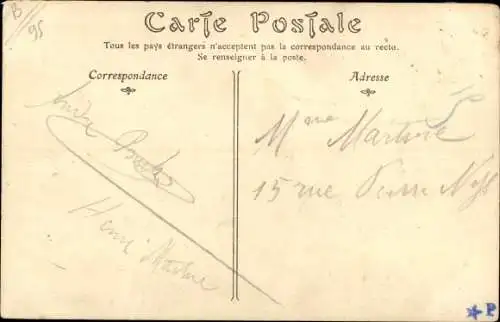 B
95
Carte Postale
Tous les pays étrangers n'acceptent pas la correspondance au recto.
Se renseigner à la poste.
Correspondance
André
Henri Martine
Adresse
Mme Martine
15 rue Pierre
P